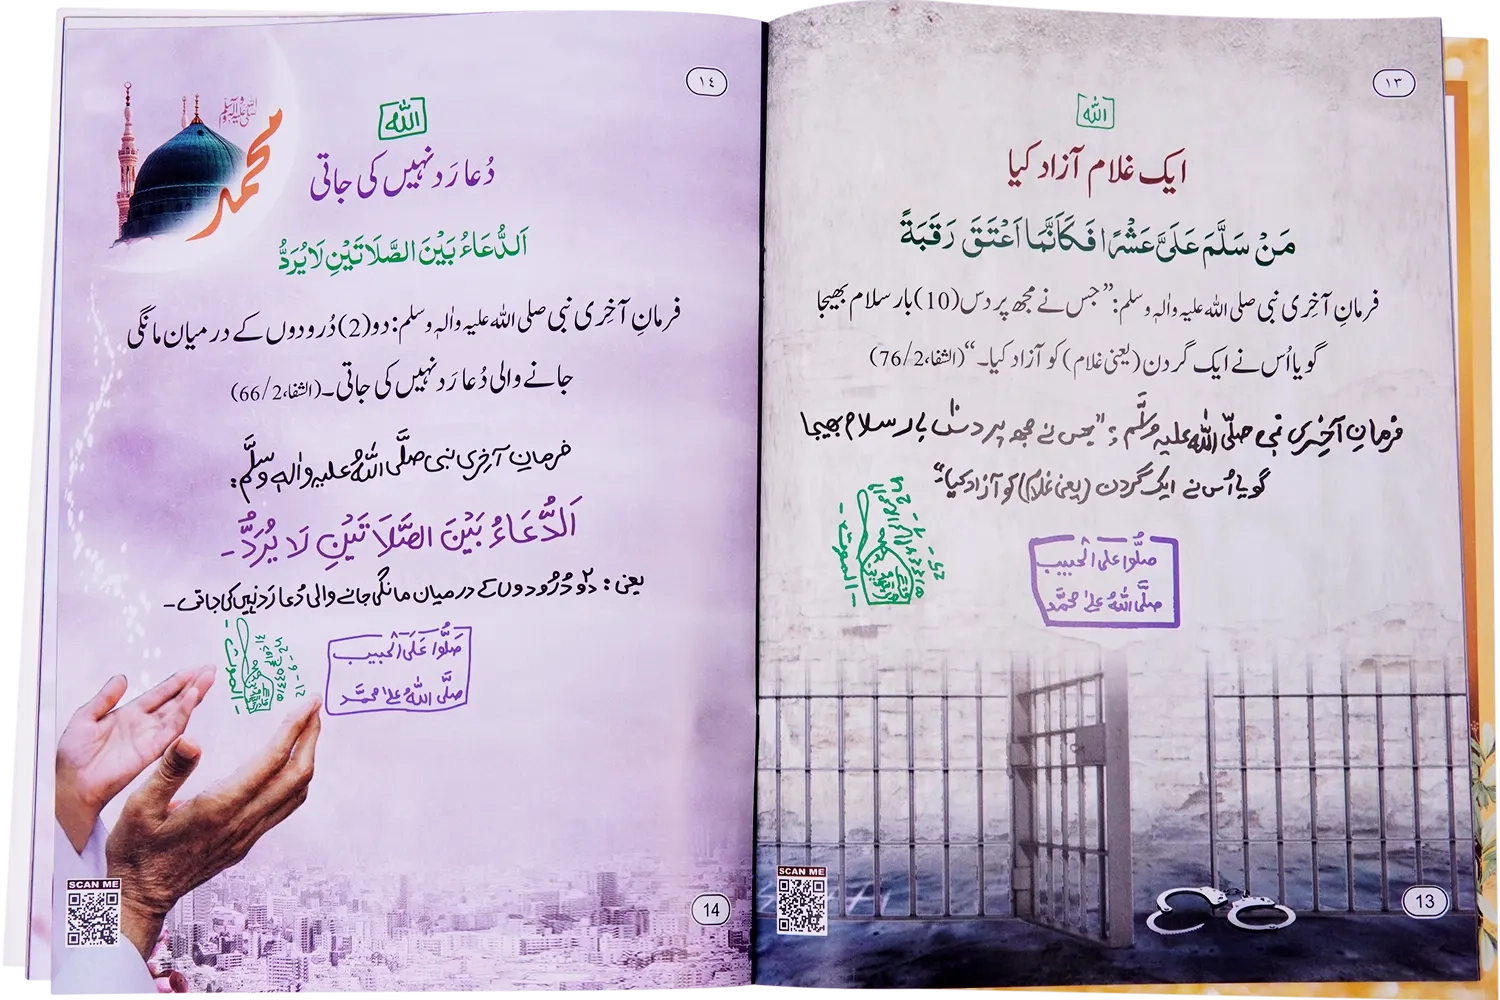 ١٣
الله
ایک غلام آزاد کیا
مَنْ سَلَّمَ عَلَیَّ عَشْرًا فَکَاَنَّمَا اَعْتَقَ رَقَبَةً
فرمانِ آخِری نبی صلی اللہ علیہ واٰلہٖ وسلم: ”جس نے مجھ پر دس (10) بار سلام بھیجا
گویا اُس نے ایک گردن (یعنی غلام) کو آزاد کیا۔“ (الشفا، 2/76)
فرمانِ آخِری نبی صلَّی اللہُ علیہ وسلَّم: ”جس نے مجھ پر دس١٠ بار سلام بھیجا
گویا اُس نے ایک گردن (یعنی غلام) کو آزاد کیا“
صلُّوا علی الحبیب
صلَّی اللہُ علیٰ محمَّد
SCAN ME
13
١٤
محمد
صلی اللہ علیہ واٰلہ وسلم
الله
دُعا رَد نہیں کی جاتی
اَلدُّعَاءُ بَیْنَ الصَّلَاتَیْنِ لَا یُرَدُّ
فرمانِ آخِری نبی صلی اللہ علیہ واٰلہٖ وسلم: دو (2) دُرودوں کے درمیان مانگی
جانے والی دُعا رَد نہیں کی جاتی۔ (الشفا، 2/66)
فرمانِ آخِری نبی صلَّی اللہُ علیہ واٰلہٖ وسلَّم:
اَلدُّعَاءُ بَیْنَ الصَّلَاتَیْنِ لَا یُرَدُّ۔
یعنی: دو٢ دُرُودوں کے درمیان مانگی جانے والی دُعا رَد نہیں کی جاتی۔
صلُّوا عَلَی الحبیب
صلَّی اللہُ علیٰ محمَّد
SCAN ME
14